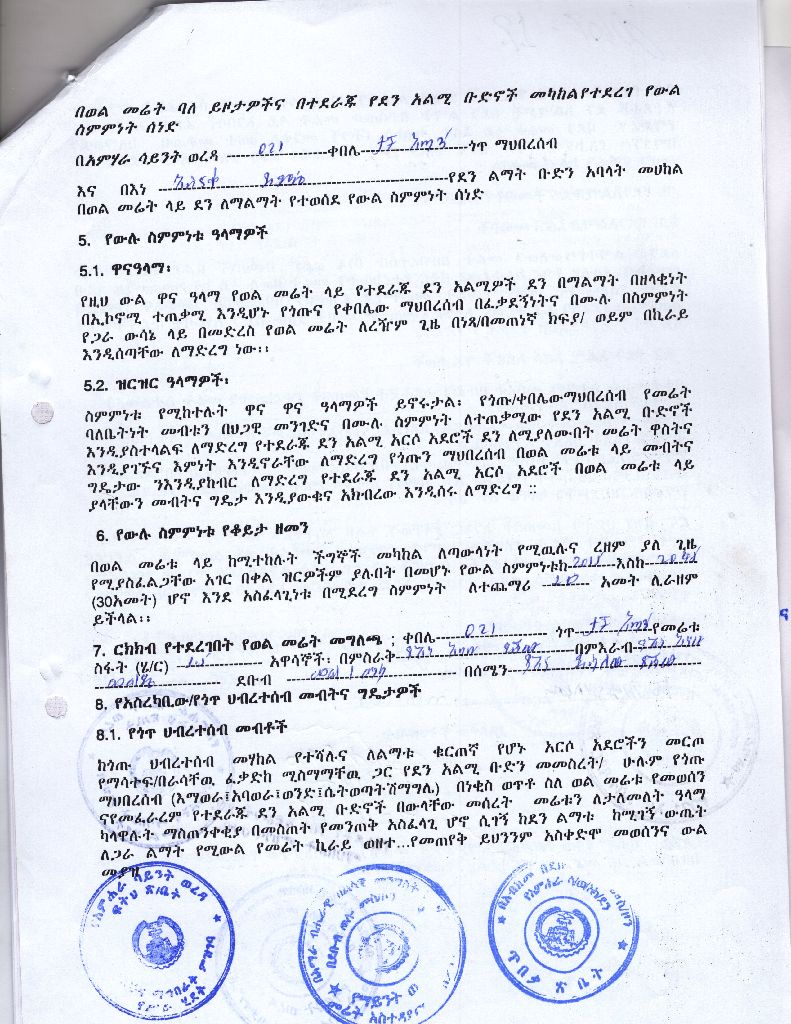 በወል መሬት ባለ ይዞታዎችና በተደራጁ የደን አልሚ ቡድኖች መካከልየተደረገ የውል
ስምምነት ሰነድ
በአምሃራ ሳይንት ወረዳ ---------- 021 ----------ቀበሌ-- ----------ጎጥ ማህበረሰብ
እና በእነ ---------- ----------የደን ልማት ቡድን አባላት መሀከል
በወል መሬት ላይ ደን ለማልማት የተወሰደ የውል ስምምነት ሰነድ
5. የውሉ ስምምነቱ ዓላማዎች
5.1. ዋናዓላማ፡
የዚህ ውል ዋና ዓላማ የወል መሬት ላይ የተደራጁ ደን አልሚዎች ደን በማልማት በዘላቂነት
በኢኮኖሚ ተጠቃሚ እንዲሆኑ የጎጡና የቀበሌው ማህበረሰብ በፈቃደኝነትና በሙሉ በስምምነት
የጋራ ውሳኔ ላይ በመድረስ የወል መሬት ለረዥም ጊዜ በነጻ/በመጠነኛ ክፍያ/ ወይም በኪራይ
እንዲሰጣቸው ለማድረግ ነው፡፡
5.2. ዝርዝር ዓላማዎች፡
ስምምነቱ የሚከተሉት ዋና ዋና ዓላማዎች ይኖሩታል፡ የጎጡ/ቀበሌውማህበረሰብ የመሬት
ባለቤትነት መብቱን በህጋዊ መንገድና በሙሉ ስምምነት ለተጠቃሚው የደን አልሚ ቡድኖች
እንዲያስተላልፍ ለማድረግ የተደራጁ ደን አልሚ አርሶ አደሮች ደን ለሚያለሙበት መሬት ዋስትና
እንዲያገኙና እምነት እንዲኖራቸው ለማድረግ የጎጡን ማህበረሰብ በወል መሬቱ ላይ መብትና
ግዴታው ንእንዲያከብር ለማድረግ የተደራጁ ደን አልሚ አርሶ አደሮች በወል መሬቱ ላይ
ያላቸውን መብትና ግዴታ እንዲያውቁና አክብረው እንዲሰሩ ለማድረግ ::
6. የውሉ ስምምነቱ የቆይታ ዘመን
በወል መሬቱ ላይ ከሚተከሉት ችግኞች መካከል ለጣውላነት የሚዉሉና ረዘም ያለ ጊዜ
የሚያስፈልጋቸው አገር በቀል ዝርዎችም ያሉበት በመሆኑ የውል ስምምነቱከ-- --እስከ--
(30አመት) ሆኖ እንደ አስፈላጊነቱ በሚደረግ ስምምነት ለተጨማሪ ---- ---- አመት ሊራዘም
ይችላል፡፡
7. ርክክብ የተደረገበት የወል መሬት መግለጫ ; ቀበሌ---------- 021 ---------- ጎጥ-- የመሬቱ
ስፋት (ሄ/ር) ---------- አዋሳኞች፡ በምስራቅ---------- በምእራብ--
---------- ደቡብ ---------- በሰሜን----------
8. የአስረካቢው/የጎጥ ህብረተሰብ መብትና ግዴታዎች
8.1. የጎጥ ህብረተሰብ መብቶች
ከጎጡ ህብረተሰብ መሃከል የተሻሉና ለልማቱ ቁርጠኛ የሆኑ አርሶ አደሮችን መርጦ
የማሳተፍ/በራሳቸዉ ፈቃድከ ሚስማማቸዉ ጋር የደን አልሚ ቡድን መመስረት/ ሁሉም የጎጡ
ማህበረሰብ (እማወራ፤አባወራ፤ወንድ፤ሴትወጣትሽማግሌ) በነቂስ ወጥቶ ስለ ወል መሬቱ የመወሰን
ናየመፈራረም የተደራጁ ደን አልሚ ቡድኖች በውላቸው መሰረት መሬቱን ለታለመለት ዓላማ
ካላዋሉት ማስጠንቀቂያ በመስጠት የመንጠቅ አስፈላጊ ሆኖ ሲገኝ ከደን ልማቱ ከሚገኝ ውጤት
ለጋራ ልማት የሚውል የመሬት ኪራይ ወዘተ...የመጠየቅ ይህንንም አስቀድሞ መወሰንና ውል
መያዝ
በአምሐራ ሳይንት ወረዳ
ፍትህ ጽ/ቤት
መሬት አስተዳደር
ጥበቃ ጽ ቤት